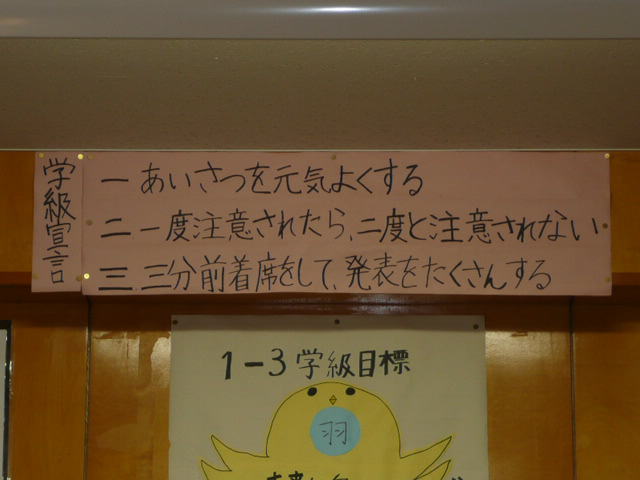 学級宣言
一 あいさつを元気よくする
二 一度注意されたら、二度と注意されない
三、三分前着席をして、発表をたくさんする
1-3学級目標
羽